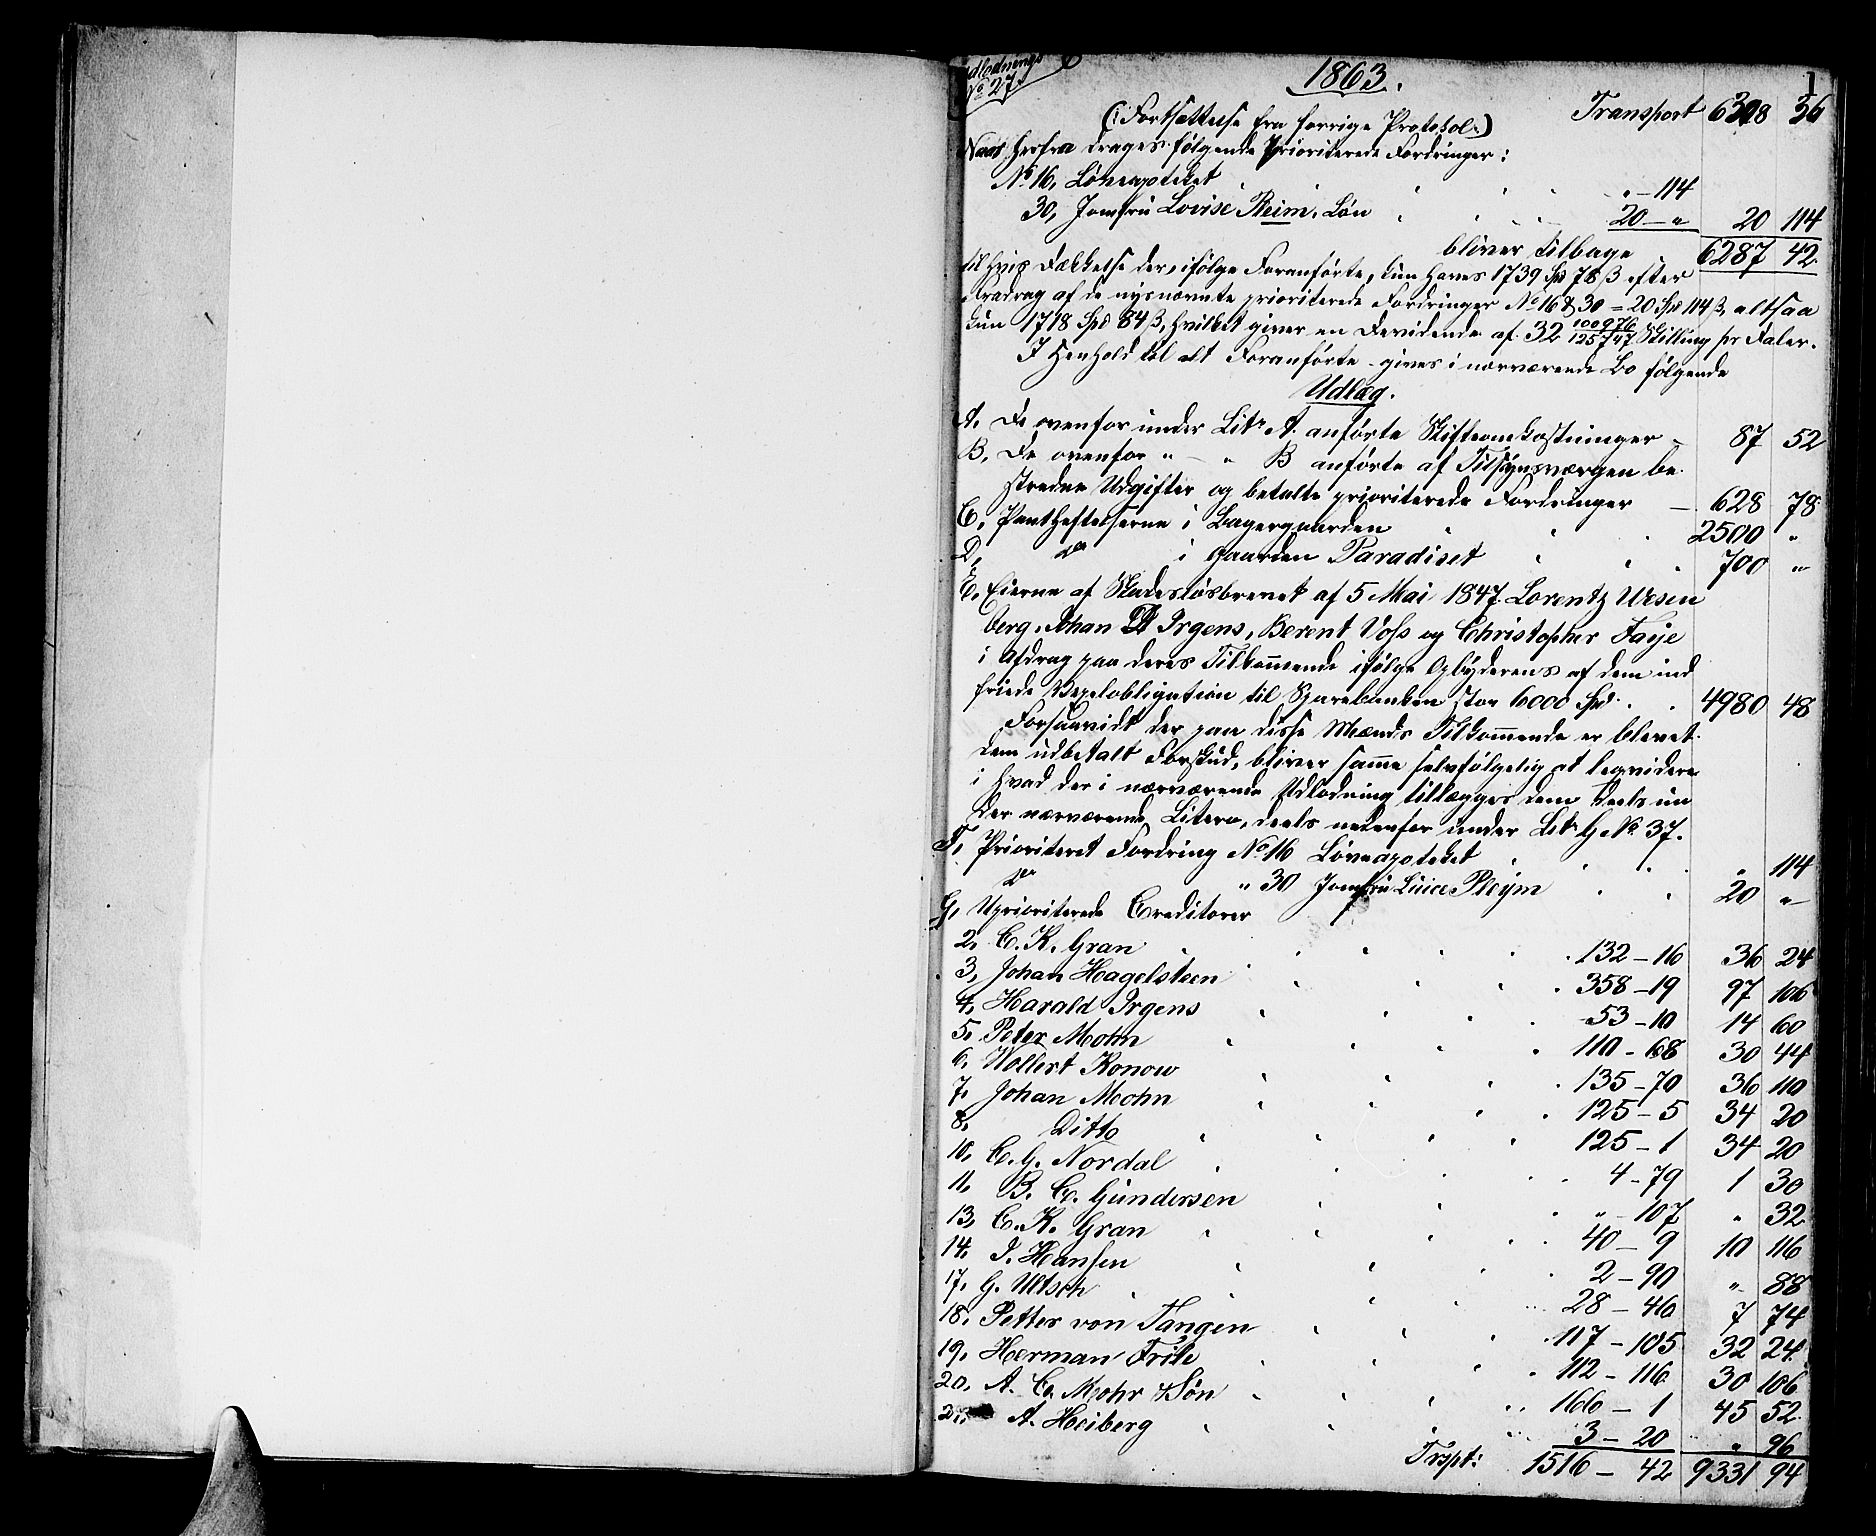 Udlodnings
No 27.
1863.
1
(: Fortsættelse fra forrige Protokol:) Transport 6308 36
Naar herfra drages følgende prioriterede Fordringer:
No 16, Løveapoteket " - 114
30, Jomfru Lovise Pleim, Løn 20 - " 20 114
bliver tilbage 6287 42
til hvis Dækkelse der, ifølge Foranførte, kun haves 1739 Spd 78 ß efter
Fradrag af de nysnævnte prioriterede Fordringer No 16 & 30 = 20 Spd 114 ß, altsaa
kun 1718 Spd 84 ß, hvilket giver en Devidende af 32 100976/125747 Skilling pr Daler.
I Henhold til alt Foranførte gives i nærværende Bo følgende
Udlæg.
A, De ovenfor under Litr A. anførte Skifteomkostninger - 87 52
B, De ovenfor " - " B anførte af Tilsynsværgen be-
stredne Udgifter og betalte prioriterede Fordringer - 628 78
C, Panthæftelserne i Bagergaarden 2500 "
D, do i Gaarden Paradiset 700 "
E, Eierne af Skadesløsbrevet af 5 Mai 1847. Lorentz Wesen
berg, Johan D Irgens, Berent Voss og Christopher Faije
i Afdrag paa deres Tilkommende ifølge Opbyderens af dem ind
friede Vexelobligation til Sparebanken stor 6000 Spd. 4980 48
Forsaavidt der paa disse Mænds Tilkommende er blevet
dem udbetalt Forskud, bliver samme selvfølgelig at liqvidere
i hvad der i nærværende Udlodning tillægges dem deels un
der nærværende Litera, deels nedenfor under Litr G No 37.
F, Prioriteret Fordring No 16 Løveapoteket " 114
do " 30 Jomfru Pleym 20 "
G, Uprioriterede Creditorer
2, C. K. Gran 132 - 16 36 24
3, Johan Hagelsteen 358 - 19 97 106
4, Harald Irgens 53 - 10 14 60
5, Peter Mohn 110 - 68 30 44
6, Wollert Konow 135 - 70 36 110
7, Johan Mohn 125 - 5 34 20
8, Ditto 125 - 1 34 20
10, C. G. Nordal 4 - 79 1 30
11, B. C. Gundersen " - 107 " 32
13, C. K. Gran 40 - 9 10 116
14, I. Hansen 2 - 90 " 88
17, G. Wltsch 28 - 46 7 74
18, Petter von Tangen 117 - 105 32 24
19, Herman Friele 112 - 116 30 106
20, A. C. Mohr & Søn 166 - 1 45 52
21, A. Heiberg 3 - 20 " 96
Trspt: 1516 - 42 9331 94